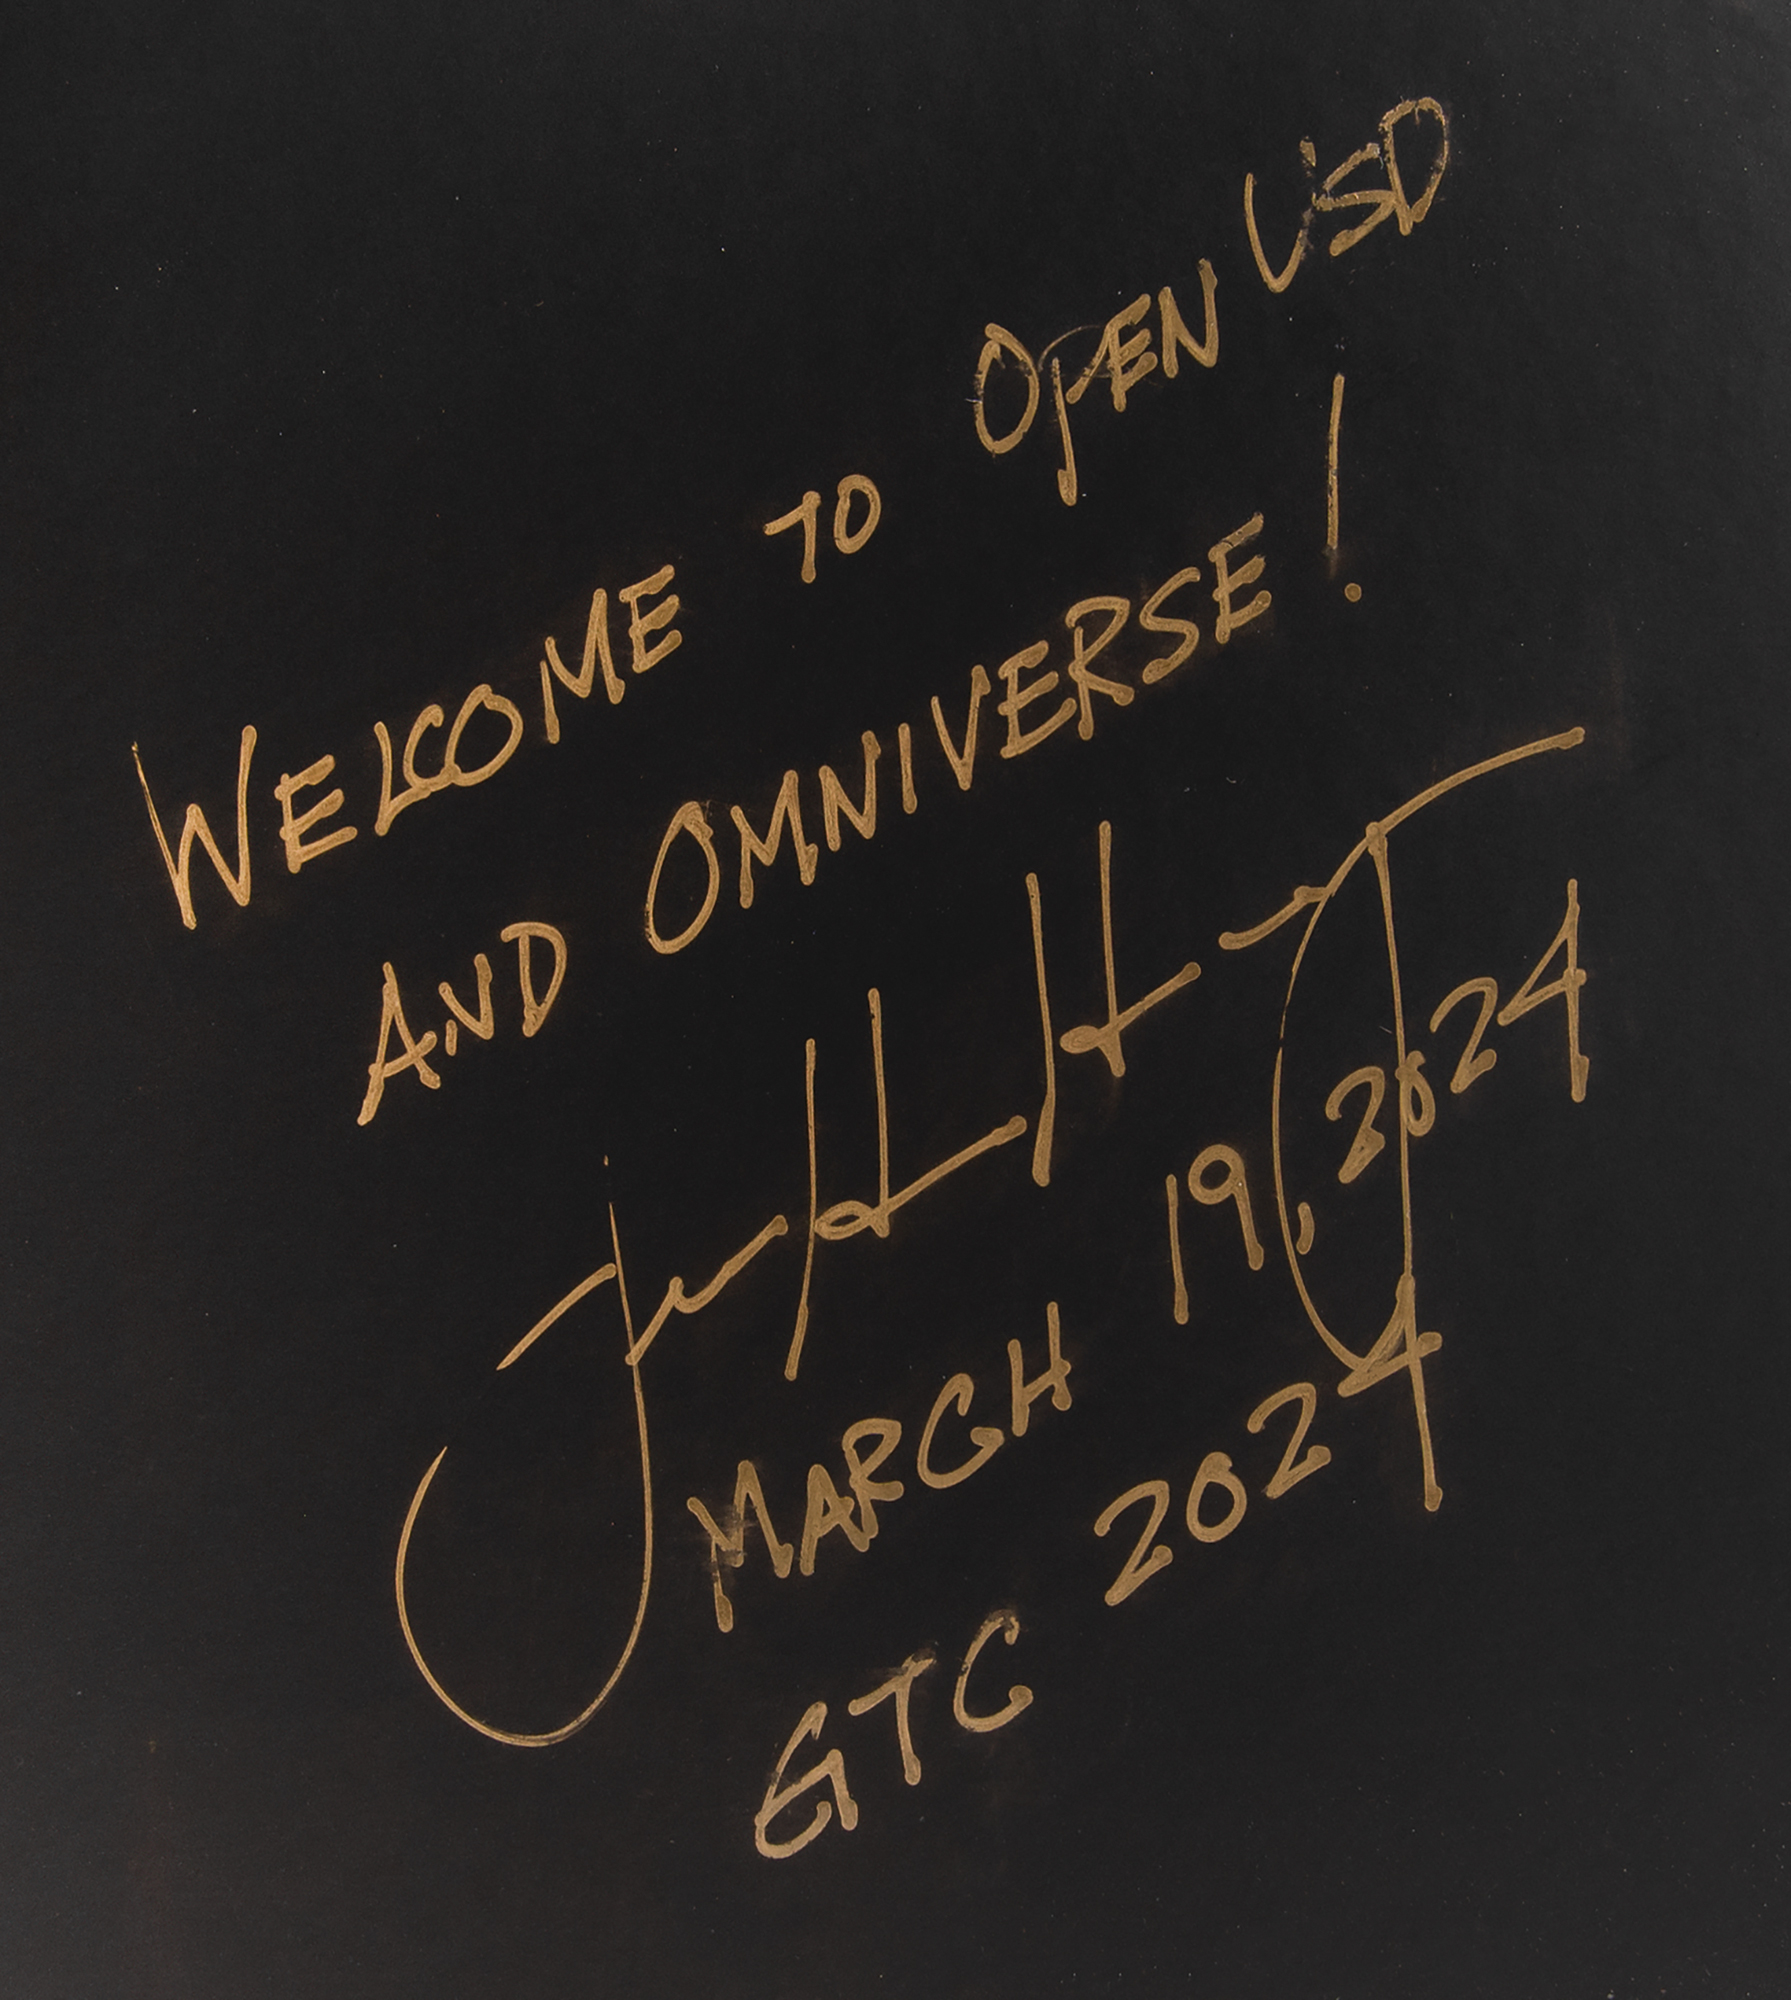 WELCOME TO OPEN USD
AND OMNIVERSE!
MARCH 19, 2024
GTC 2024